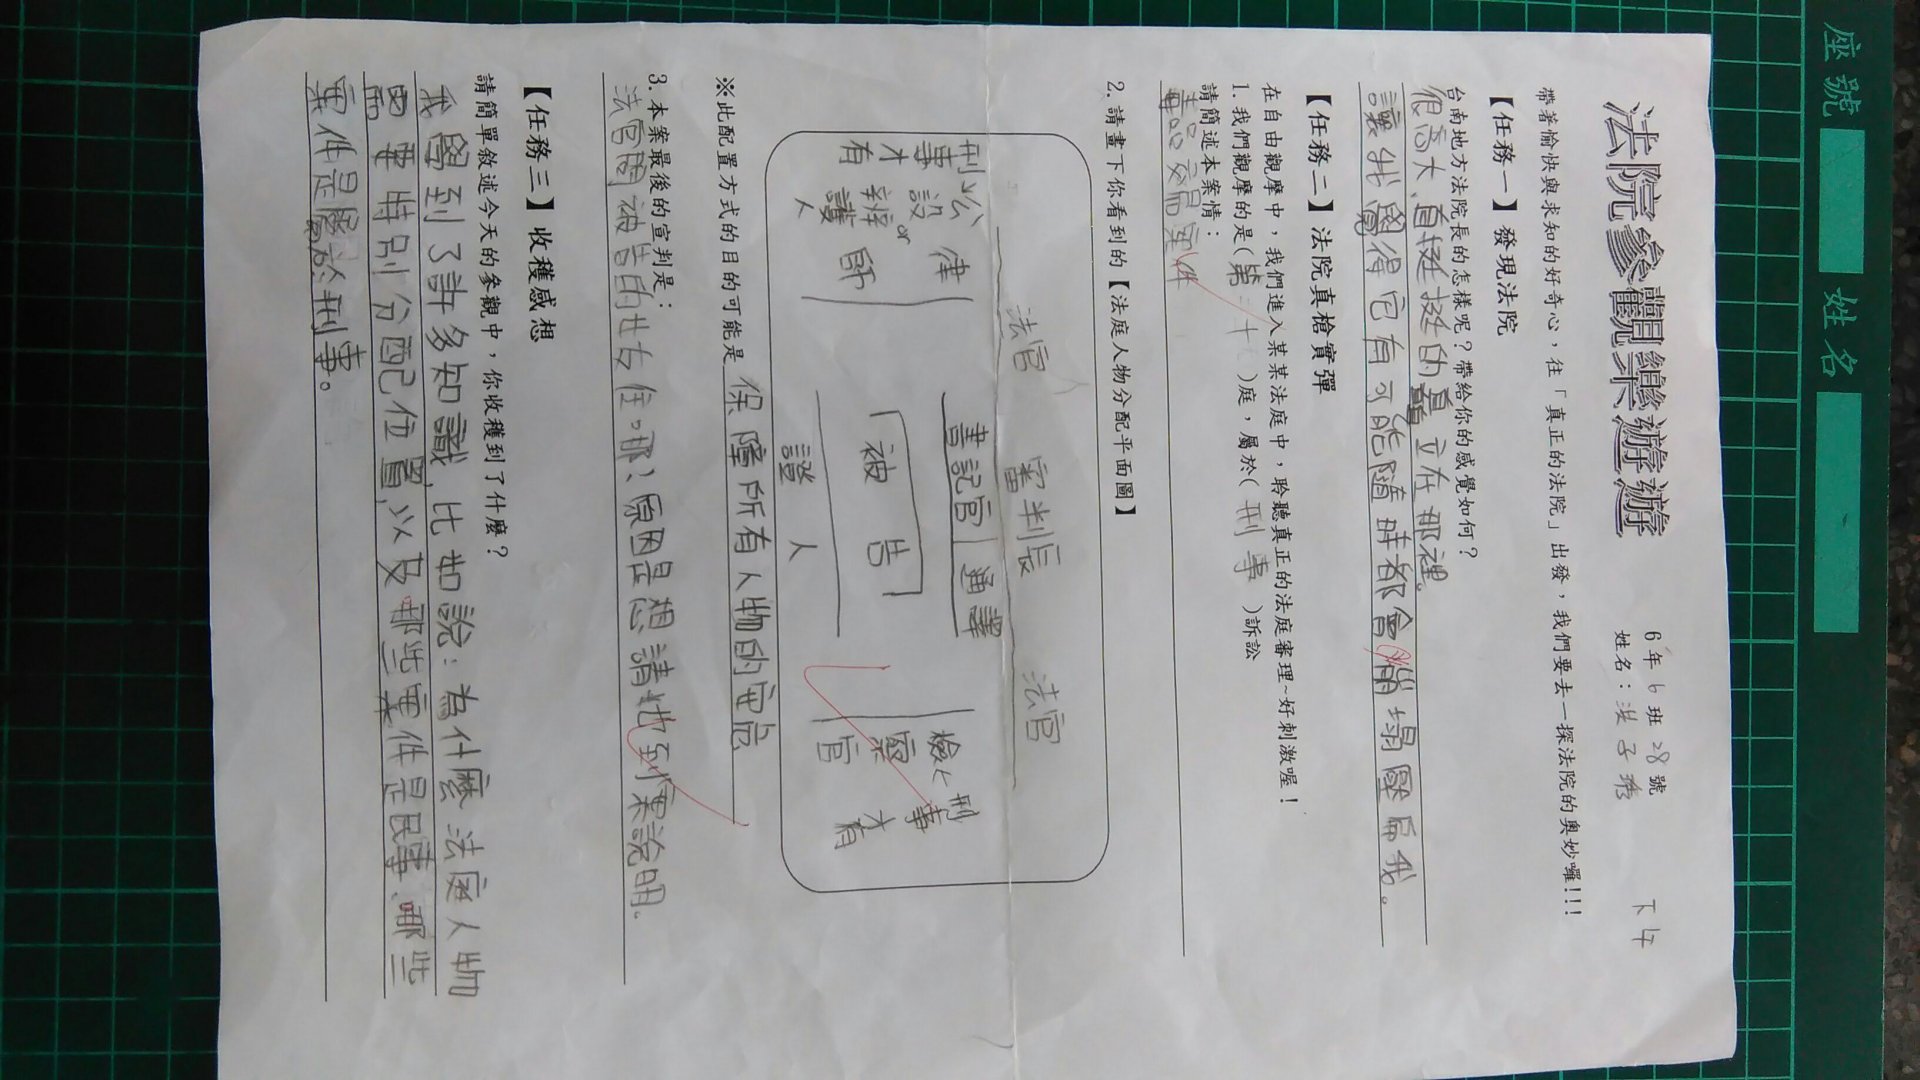 座號 姓名
法院參觀樂遊遊
6年6班28號 下午
姓名：洪子
帶著愉快與求知的好奇心，往「真正的法院」出發，我們要去一探法院的奧妙囉!!!
【任務一】發現法院
台南地方法院長的怎樣呢？帶給你的感覺如何？
很高大、直挺挺的矗立在那裡。
讓我覺得它有可能隨時都會倒塌壓扁我。
【任務二】法院真槍實彈
在自由觀摩中，我們進入某某法庭中，聆聽真正的法庭審理~好刺激喔！
1. 我們觀摩的是(第二十 )庭，屬於( 刑事 )訴訟
請簡述本案情：
毒品交易案件
2. 請畫下你看到的【法庭人物分配平面圖】
法官 審判長 法官
書記官 通譯
律師
公設辯護人
or
刑事才有
被告
證人
檢察官
刑事才有
※此配置方式的目的可能是 保障所有人物的安危
3. 本案最後的宣判是：
法官問被告的女友住哪？原因是想請她到案說明。
【任務三】收穫感想
請簡單敘述今天的參觀中，你收穫到了什麼？
我學到了許多知識，比如說：為什麼法庭人物
要特別分配位置，以及哪些案件是民事、哪些
案件是屬於刑事。